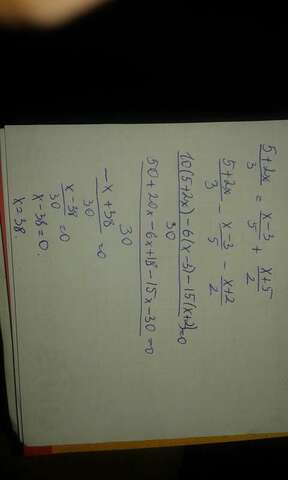 (5+2x)/3 = (x-3)/5 + (x+5)/2
(5+2x)/3 - (x-3)/5 - (x+2)/2
(10(5+2x)-6(x-3)-15(x+2))/30=0
(50+20x-6x+18-15x-30)/30=0
(-x+38)/30=0
(x-38)/30=0
x-38=0.
x=38.